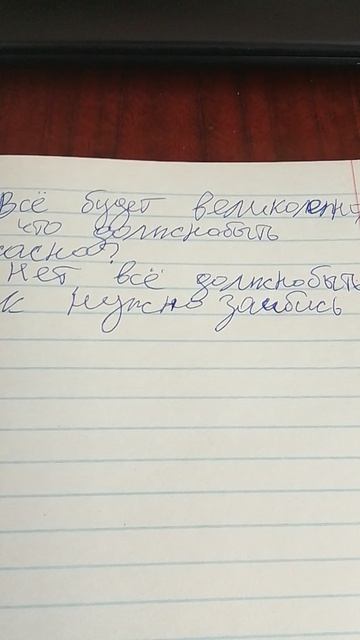 Всё будет великолепно,
что должнобыть
расная?
Нет, всё должнобыть
к нужно заибись